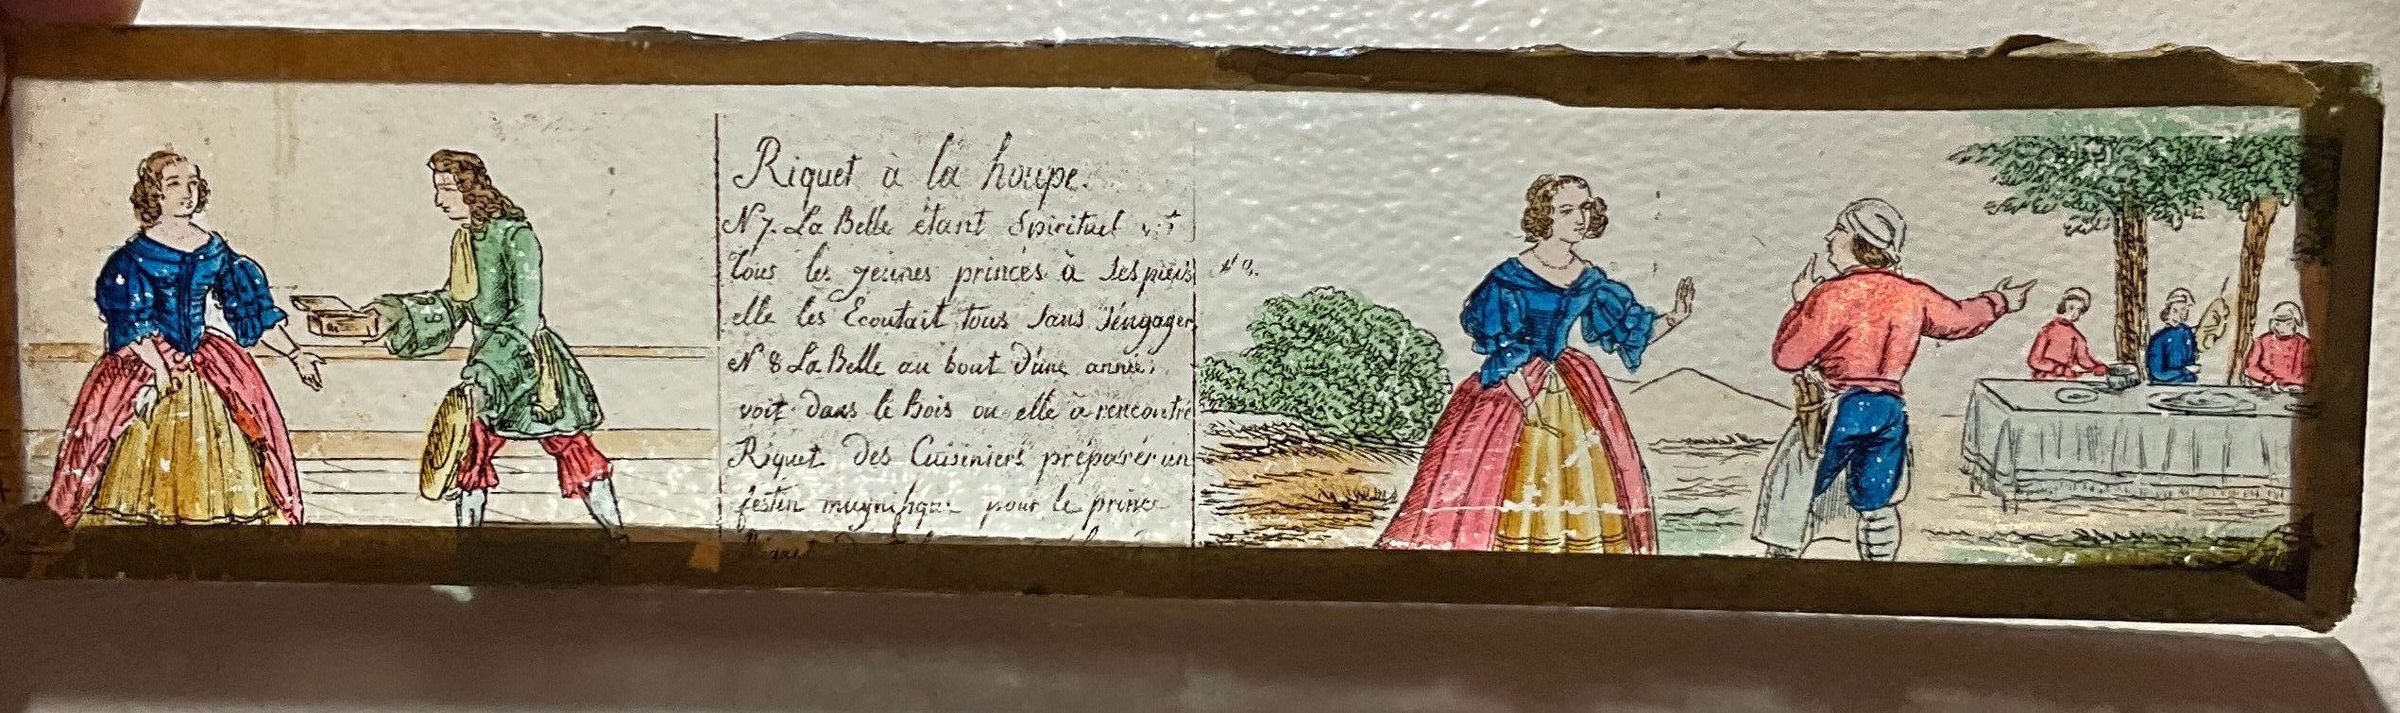 Riquet à la houpe.
N 7. La Belle étant Spirituel vit
tous les jeunes princes à ses pieds
elle les Ecoutait tous sans s'engager
N 8 La Belle au bout d'une année,
voit dans le Bois ou elle à rencontré
Riquet des Cuisiniers préparér un
festin magnifique pour le prince
Riquet